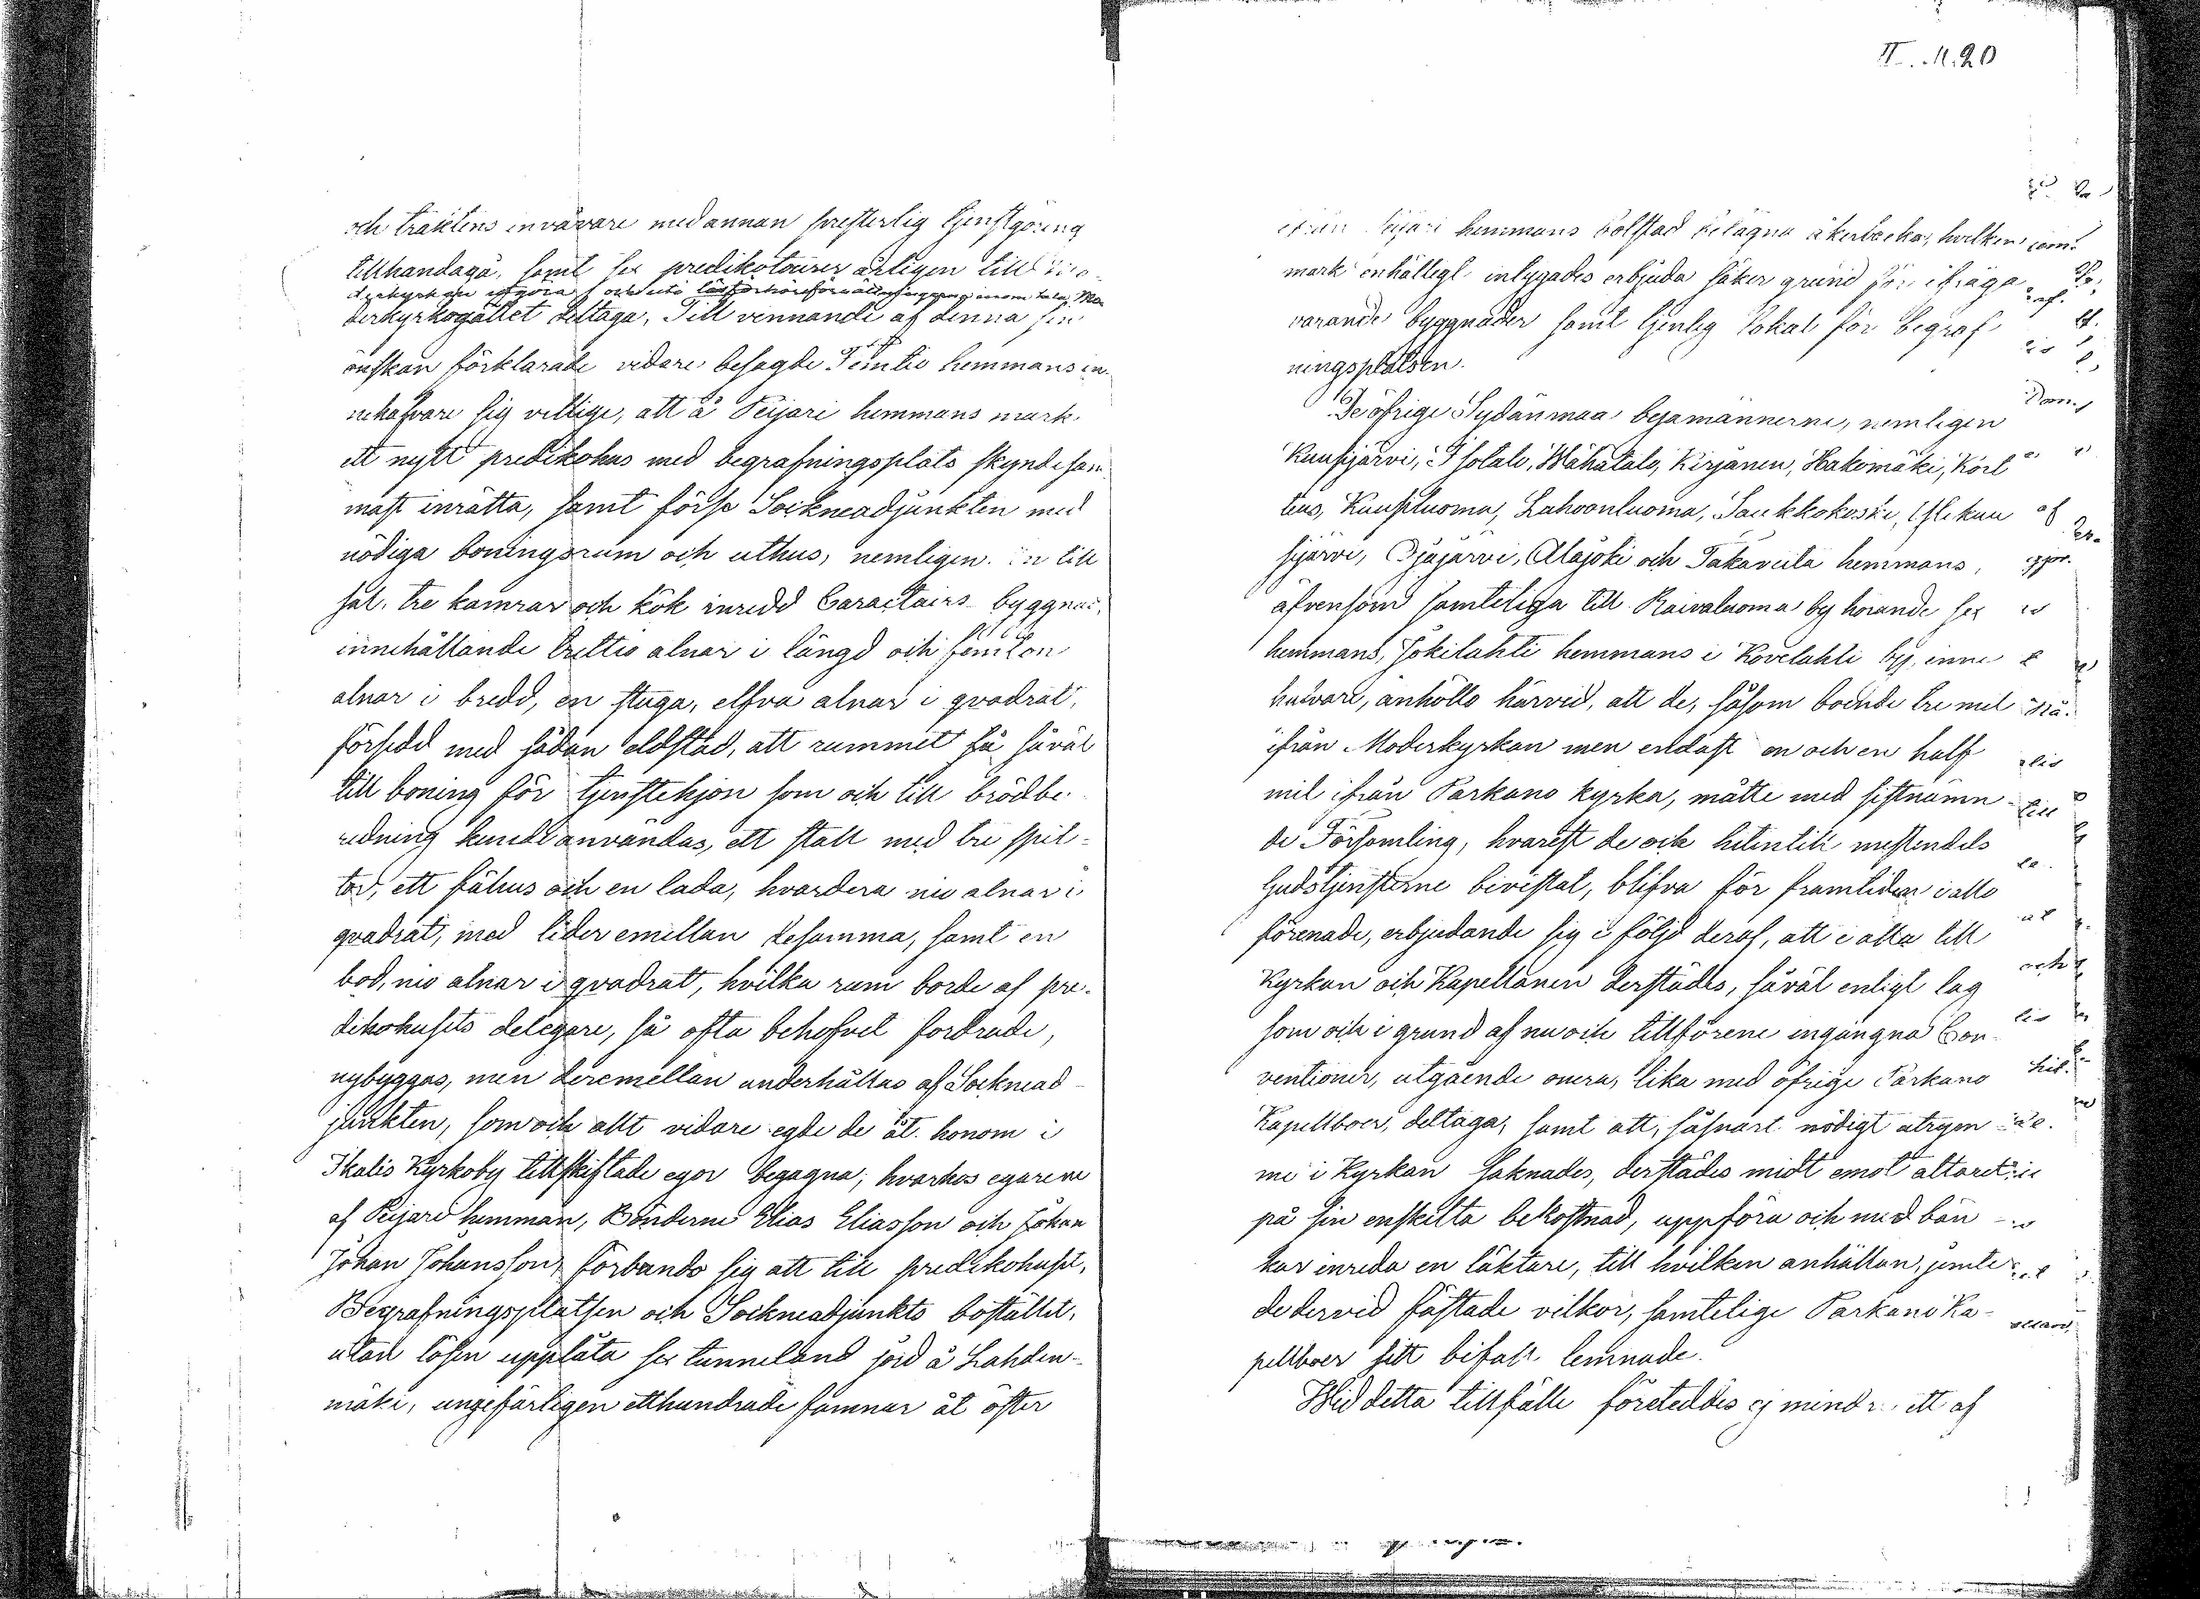 och traktens invånare med annan presterlig tjenstgöring
tillhandagå, samt sex predikotourer årligen till Mo-
derkyrkan göra, och uti läseförhörsförrättningarne inom hela Mo
derkyrkogället deltaga. Till vinnande af denna sin
önskan förklarade vidare besagde Femtio hemmans in-
nehafvare sig villige, att å Peijari hemmans mark
ett nytt predikohus med begrafningsplats skyndsam
mast inrätta, samt förse Sockneadjunkten med
nödiga boningsrum och uthus, nemligen. en till
sal, tre kamrar och kök inredd Caractairs byggnad,
innehållande trettio alnar i längd och femton
alnar i bredd, en stuga, elfva alnar i qvadrat,
försedd med sådan eldstad, att rummet så såväl
till boning för tjenstehjon som och till brödbe-
redning kunde användas, ett stall med tre spil-
tor, ett fähus och en lada, hvardera nio alnar i
qvadrat, med lider emellan desamma, samt en
bod, nio alnar i qvadrat, hvilka rum borde af pre-
dikohusets delegare, så ofta behofvet fordrade,
nybyggas, men deremellan underhållas af Socknead-
junkten, som och allt vidare egde de åt honom i
Ikalis Kyrkoby tillskiftade egor begagna; hvarhos egarene
af Peijari hemman, Bönderne Elias Eliasson och Johan
Johan Johansson, förbundo sig att till predikohuset,
Begrafningsplatsen och Sockneadjunkts bostället,
utan lösen upplåta sex tunneland jord å Lahden-
mäki, ungefärligen etthundrade famnar åt öster
II. M. 20
ifrån Peijari hemmans bolstad belägna åkerbacka, hvilken som
mark enhälligt intygades erbjuda säker grund för ifråga
varande byggnader samt tjenlig lokal för begraf
ningsplatsen.
De öfrige Sydänmaa byamännerne, nemligen
Kuusijärvi, Isotalo, Wähätalo, Kirjanen, Hakomäki, Kort
teus, Kuusiluoma, Lahvonluoma, Saukkokoski, Ylikuu
sijärvi, Ojajärvi, Alajoki och Takaveila hemmans,
äfvensom samteliga till Raivaluoma by hörande sex
hemmans, Jokilahti hemmans i Kovelahti by, inne
hafvare, anhöllo härvid, att de, såsom boende tre mil
ifrån Moderkyrkan men endast en och en half
mil ifrån Parkano kyrka, måtte med sistnämn
de Församling, hvarest de och hitintill mestendels
Gudstjensterne bivistat, blifva för framtiden i allo
förenade, erbjudande sig i följd deraf, att i alla till
Kyrkan och Kapellanen derstädes, såväl enligt lag
som och i grund af nu och tillförene ingångna Con-
ventioner, utgående onera, lika med öfrige Parkano
Kapellboer, deltaga, samt att, såsnart nödigt utrym
me i Kyrkan saknades, derstädes midt emot altaret
på sin enskilta bekostnad, uppföra och med bän
kar inreda en läktare, till hvilken anhållan, jemte
de dervid fästade vilkor, samtelige Parkano Ka-
pellboer sitt bifall lemnade.
Wid detta tillfälle företeddes ej mindre ett af